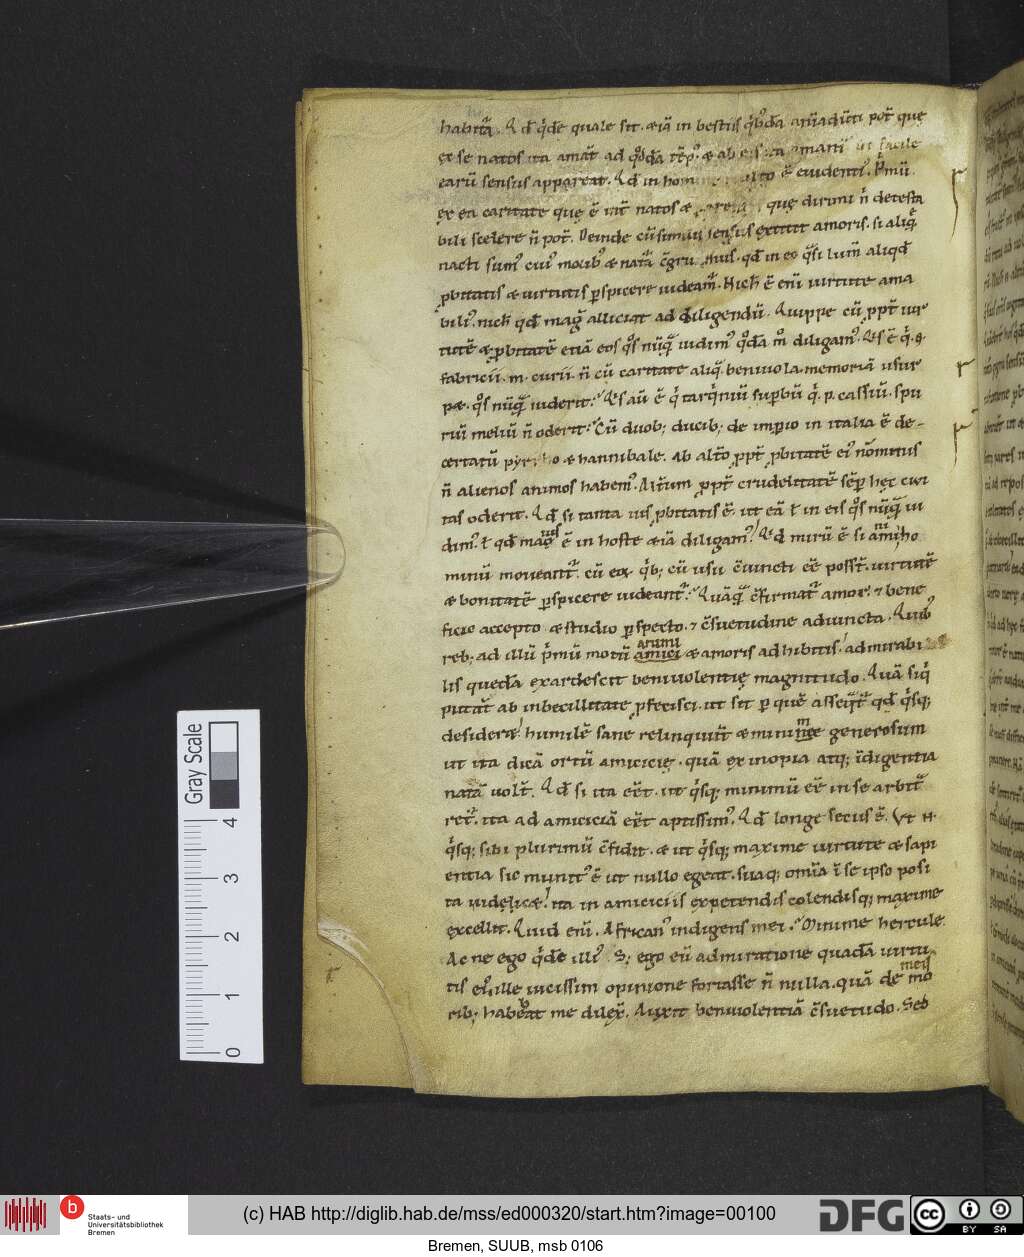 habitũ. Qd̄ qͥdē quale sit. & iã in bestiis qͥbᵒdã anīaduti pot̃ quę
ex se natos ita amãt ad qͦdã tẽpꝰ. & ab eis ita amant̃ ut facile
earũ sensus appareat. Qd̄ in homine multo ẽ euidentiꝰ. Pͥmũ
ex ea caritate quę ẽ int̃ natos & parentes quę dirimi ñ detesta
bili scelere ñ pot̃. Deinde cũ similis sensus extitit amoris. si aliqͤ
nacti sumꝰ cuiꝰ moribꝰ & natã cg̃ruamus. qd̄ in eo qͣsi lum̃ aliqd̄
ꝓbitatis & uirtutis ꝑspicere uideam̃. Nich̃ ẽ eni uirtute ama
biliꝰ. nich̃ qd̄ mag̃ alliciat ad diligendũ. Quippe cũ ꝓpt̃ uir
tutẽ & ꝓbitatẽ etiã eos qͦs nũqͣ uidimꝰ qͦdã m̊ diligamꝰ. Qͥs ẽ qͥ. g.
fabricii. m. curii. ñ cũ caritate aliqͣ. beniuola. memoriã usur
pæ. qͦs nũqͣ̃ uiderit? Qͥs aũ ẽ qͥ tarqͥniũ supbũ qͥ. p. cassiũ. spu
riũ meliũ ñ oderit? Cũ duob; ducib; de impio in italia ẽ de
certatũ pyrrho & hannibale. Ab alt̃o ꝓpt̃ ꝓbitatẽ eiꝰ ñ nimis
ñ alienos animos habemꝰ. Alt̃um ꝓpt̃ crudelitatẽ sẽp hęc ciui
tas oderit. Qd̄ si tanta uis ꝓbitatis ẽ. ut eã ł in eis qͦs nũqͣ̃ ui
dimꝰ. ł qd̄ magis ẽ in hoste & iã diligamꝰ! Qͥd mirũ ẽ si animi ho
minũ moueant̃. cũ ex qͥb; cũ usu c̃iuncti eẽ posst̃. uirtutẽ
& bonitatẽ ꝑspicere uideant̃? Quãqͣ c̃firmat̃ amor. & bene
ficio accepto. & studio ꝑspecto. & c̃suetudine adiuncta. Quibꝰ
reb; ad illũ pͥmũ motũ amici animi & amoris adhibitis! admirabi
lis quedã exardescit beniuolentię magnitudo. Quã siqͥ
putãt ab inbecillitate ꝓfecisci. ut sit p quẽ asseqͣt̃ qd̄ qͥsq;
desideræ! humilẽ sane relinquũt & minime generosum
ut ita dicã ortũ amicicię. quã ex inopia atq; ĩdigentia
natã uolt̃. Qd̄ si ita eẽt. ut qͥsq; minimũ eẽ in se arbitͣ
ret̃. ita ad amiciciã eẽt aptissimꝰ. Qd̄ longe secus ẽ. Vt N.
qͥsq; sibi plurimũ c̃fidit. & ut qͥsq; maxime uirtute & sapi
entia sic munitꝰ ẽ ut nullo egeat. suaq; omĩa ĩ se ipso posi
ta iudęlicæ! Ita in amiciciis expetendis colendisq; maxime
excellit. Quid eni. Africanꝰ indigens mei? Minime hercule.
Ac ne ego qͥdẽ illiꝰ. S; ego eũ admiratione quadã uirtu
tis eiꝰ. ille uicissim opinione fortasse ñ nulla. quã de meis mo
rib; habebat me dilex̃. Auxit beniuolentiã c̃suetudo. Sed
Gray Scale
4
3
2
1
0
b
Staats- und
Universitätsbibliothek
Bremen
(c) HAB http://diglib.hab.de/mss/ed000320/start.htm?image=00100
DFG
cc
BY SA
Bremen, SUUB, msb 0106